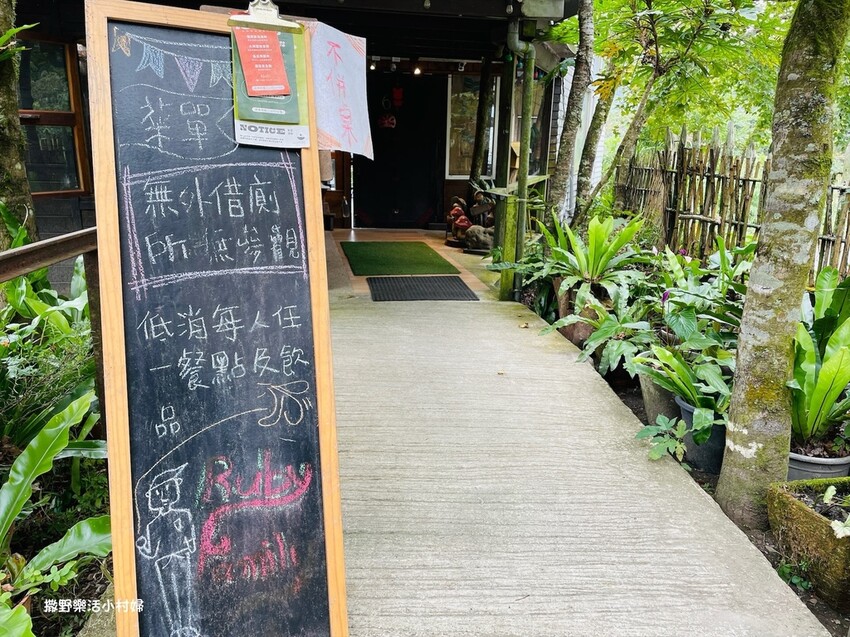 菜單
不併桌
NOTICE
無外借廁
所 無參觀
低消每人任
一餐點及飲
品
Ruby
Family
撒野樂活小村婦